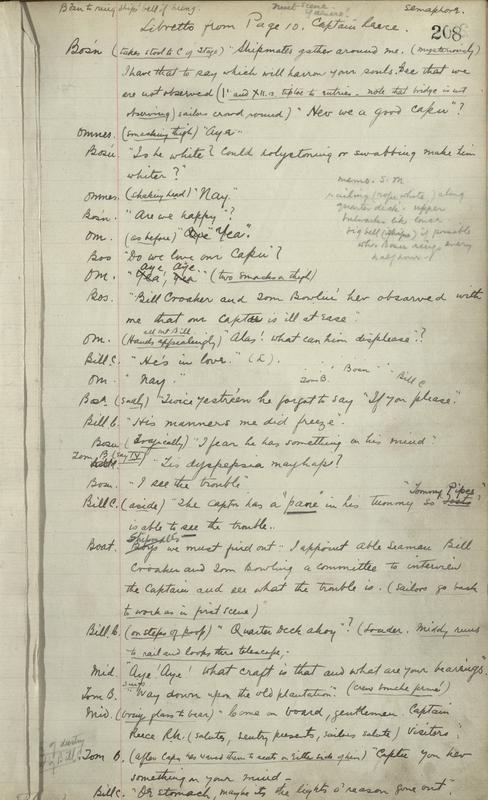 Bosun to ring ships' bell if using.
next scene
semaphore.
Libretto from Page 10. Captain Reece.
208
Bos'n (takes stool to C of stage) "Shipmates gather around me. (mysteriously)
I have that to say which will harrow your souls. See that we
are not observed (I' and XII. is tiptoe to entries - note that bridge is not
observing) sailors crowd round) "Hev we a good cap'n"?
Omnes. (smacking thigh) "Aye"
Bos'n. "Is he white? Could holystoning or swabbing make him
whiter?"
Omnes. (shaking head) "Nay."
Bos'n. "Are we happy"?
Om. (as before) "Yea".
Bos "Do we love our Cap'n"?
aye, aye
Om. "Yea, Yea" (two smacks o thigh)
memo. S.M.
railing (rope white) along
quarter deck. upper
bulwarks like lower
big bell (ships) if possible
when Bosun rings every
half hour
Bos. "Bill Croaker and Tom Bowlin' hev observed with
me that our Captin is ill at ease"
all but Bill.
Om. (Hands appealingly) "Alas! what can him displease"?
Bill. C. "He's in love." (L).
Om. "Nay."
Tom B. " Bosn " " Bill C
Bosn. (sadly) "Twice yestre'en he forgot to say "If you please."
Bill C. "His manners me did freeze".
Bosun (Tragically) "I fear he has something on his mind"
Tom B. "Tis dyspepsia mayhaps?
Bosn. "I see the trouble"
"Tommy Pipes"
Bill C. (aside) "The Captin has a "pane" in his tummy so
is able to see the trouble..
Shipmates
Boat. we must find out - I appoint Able Seaman Bill
Croaker and Tom Bowling a committee to interview
the Captain and see what the trouble is. (Sailors go back
to work as in first scene)"
Bill C. (on steps of poop) "Quarter Deck ahoy"? (Louder. Middy runs
to rail and looks thro telescope,-
Mid. "Aye! Aye! What craft is that and what are your bearings"
sings
Tom B. "Way down upon the old plantation". (crew
Mid. (bring glass to bear) - "Come on board, gentlemen. Captain
Reece R.N. (salutes, sentry presents, sailors salute) Visitors".
Tom B. (after Capn has waved them to seats on either side of him) "Captin you hev
something on your mind -
Bill C. "Or stomach, maybe its the lights o' reason gone out".